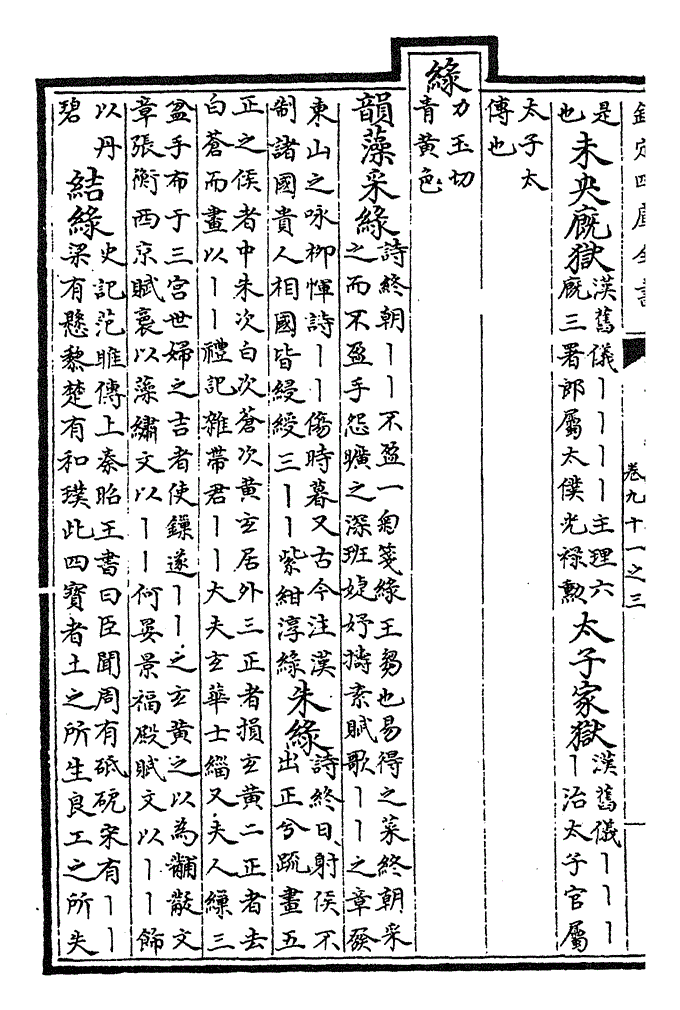 欽定四庫全書
卷九十一之三
是
也
未央廐獄
漢舊儀丨丨丨丨主理六
廐三署郎屬太僕光禄勲
太子家獄
漢舊儀丨丨丨
丨治太子官屬
太子太
傳也
緑
力玉切
青黄色
韻藻采緑
詩終朝丨丨不盈一匊箋緑王芻也易得之菜終朝采
之而不盈手怨曠之深班婕妤擣素賦歌丨丨之章發
東山之咏柳惲詩丨丨傷時暮又古今注漢
制諸國貴人相國皆緺綬三丨丨紫紺淳緑
朱緑
詩終日射侯不
出正兮疏畫五
正之侯者中朱次白次蒼次黄玄居外三正者損玄黄二正者去
白蒼而畫以丨丨禮記雜帶君丨丨大夫玄華士緇又夫人繅三
盆手布于三宫世婦之吉者使繅遂丨丨之玄黄之以為黼黻文
章張衡西京賦裛以藻繡文以丨丨何晏景福殿賦文以丨丨飾
以丹
碧
結緑
史記范雎傳上秦昭王書曰臣聞周有砥砨宋有丨丨
梁有懸黎楚有和璞此四寶者土之所生良工之所失